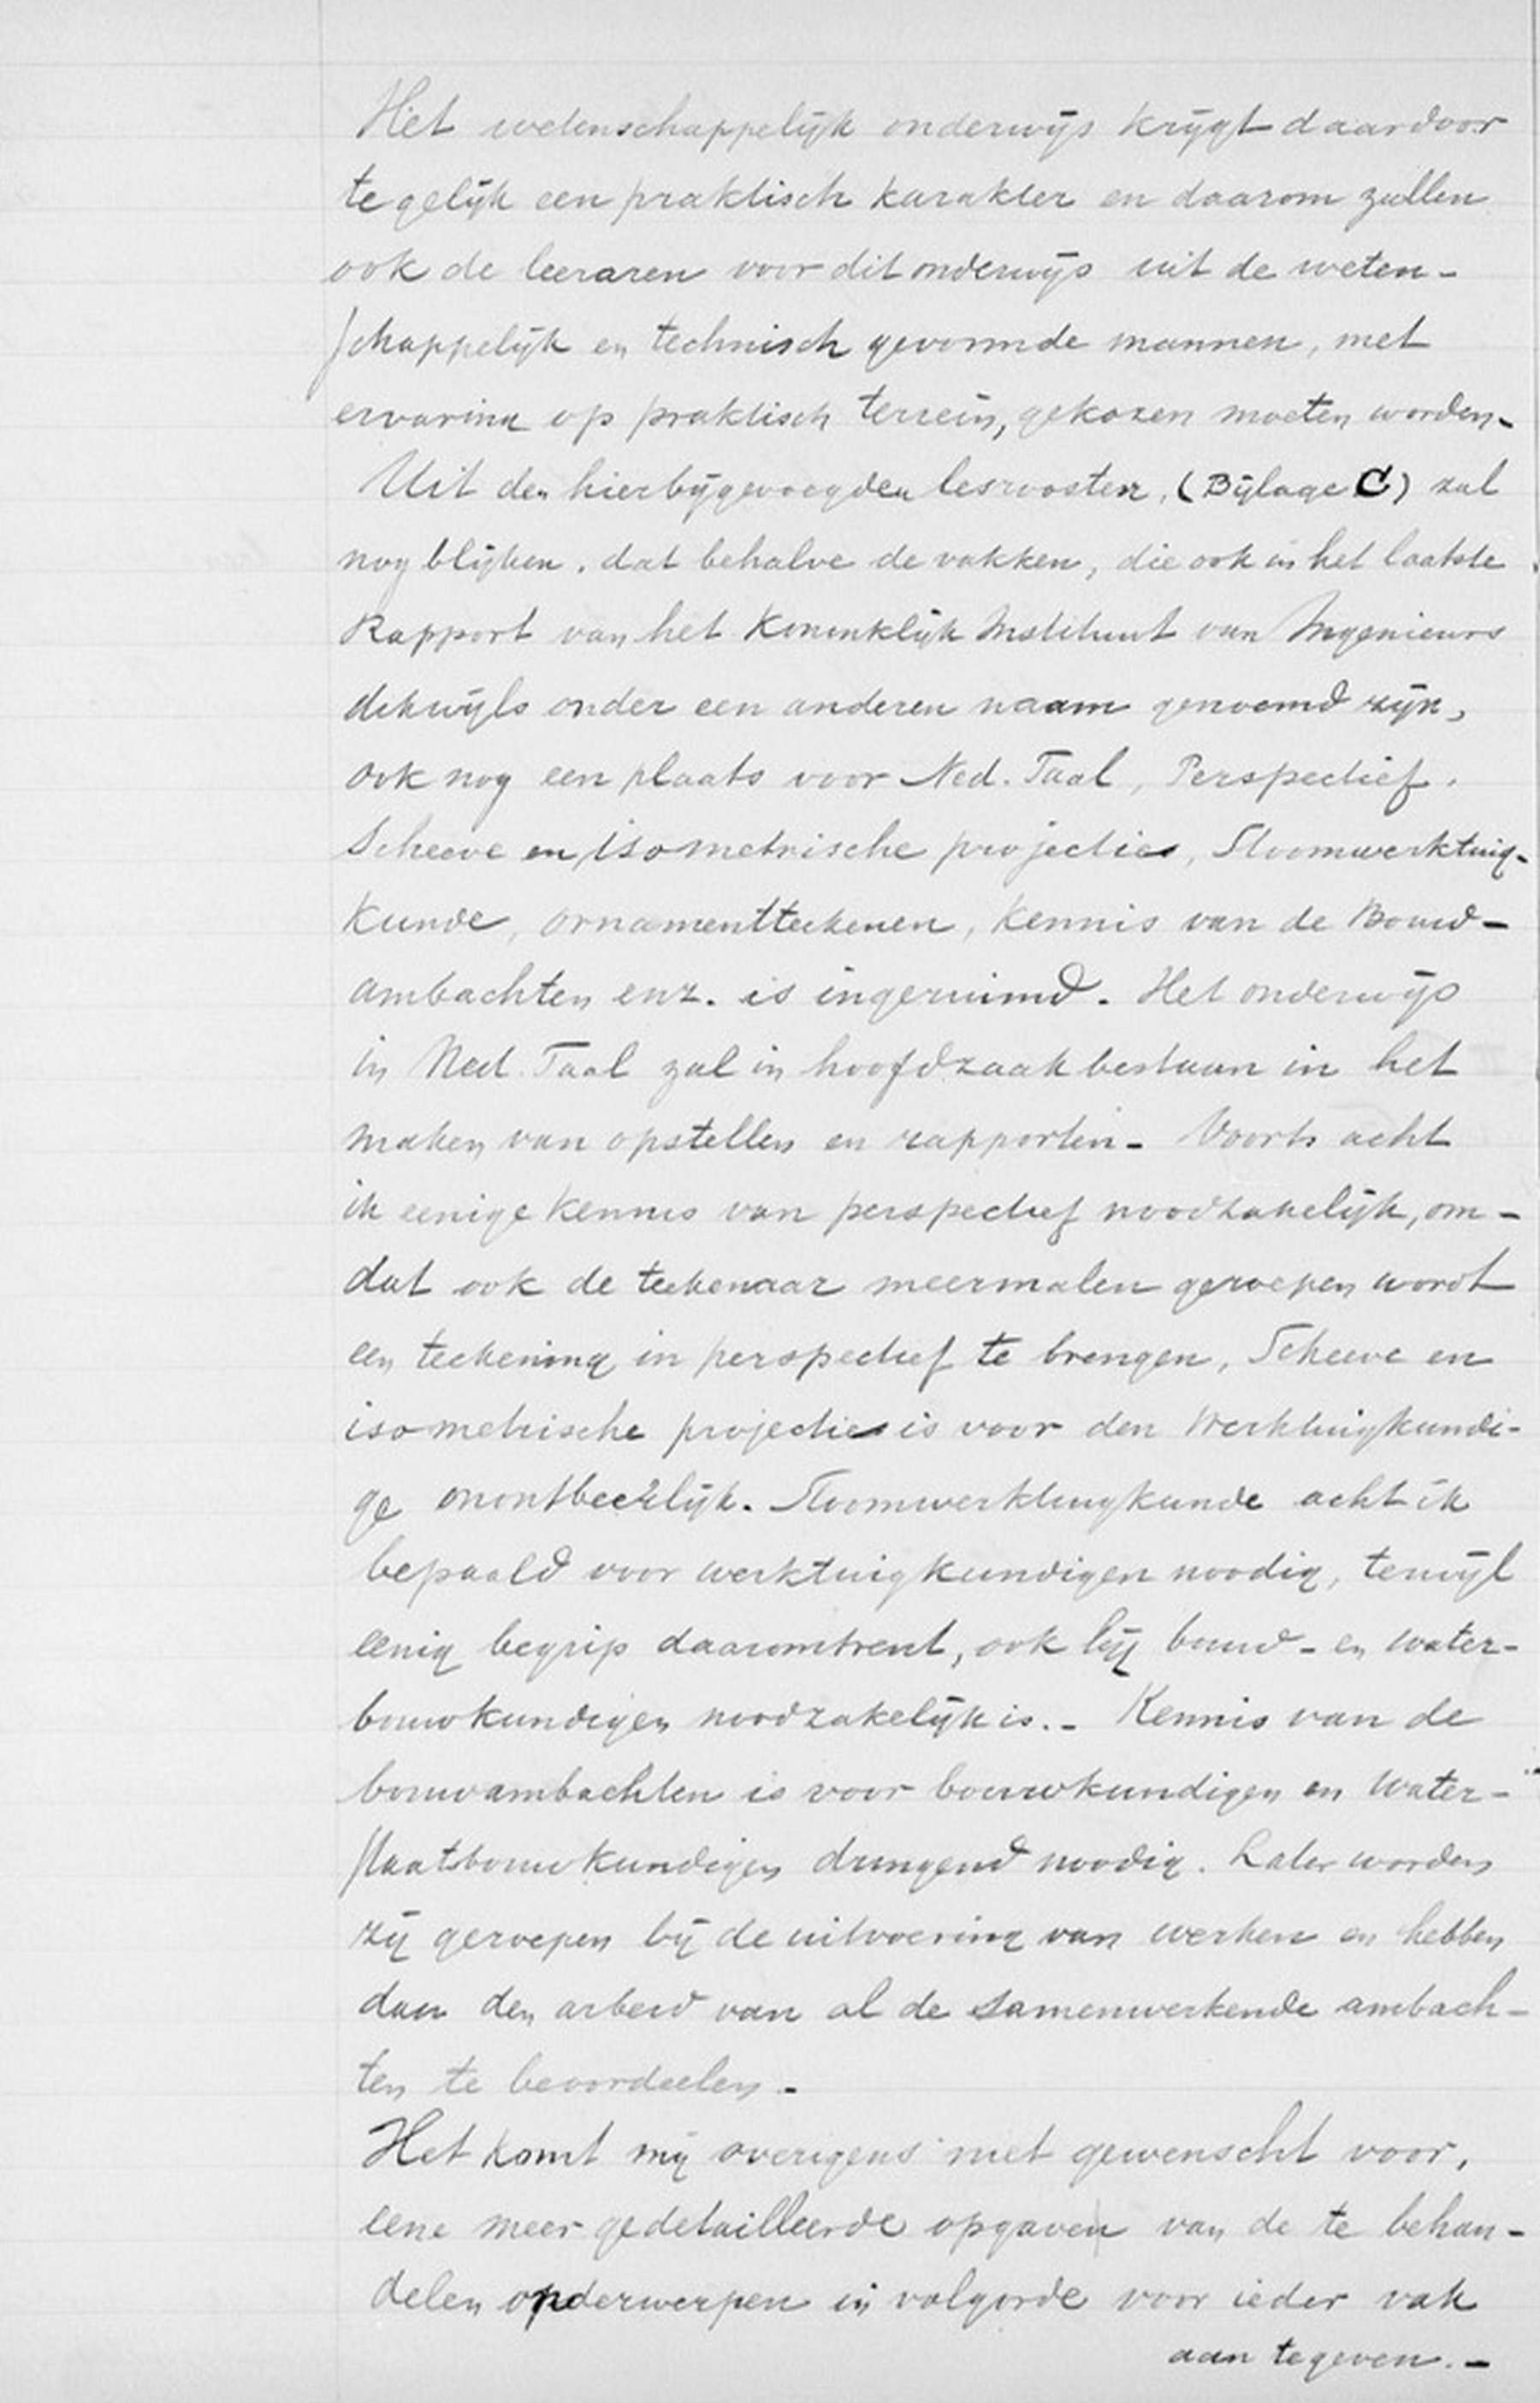 Het wetenschappelijk onderwijs krijgt daardoor
te gelijk een praktisch karakter en daarom zullen
ook de leeraren voor dit onderwijs uit de weten-
schappelijk en technisch gevormde mannen, met
ervaring op praktisch terrein, gekozen moeten worden.
Uit den hierbijgevoegden lesrooster, (Bijlage C) zal
nog blijken, dat behalve de vakken, die ook in het laatste
Rapport van het Koninklijk Instituut van Ingenieurs
dikwijls onder een anderen naam genoemd zijn,
ook nog een plaats voor Ned. Taal, Perspectief,
Scheeve en isometrische projecties, Stoomwerktuig-
kunde, ornamentteekenen, kennis van de Bouw-
ambachten enz. is ingeruimd. Het onderwijs
in Ned. Taal zal in hoofdzaak bestaan in het
maken van opstellen en rapporten. Voorts acht
ik eenige kennis van perspectief noodzakelijk, om-
dat ook de teekenaar meermalen geroepen wordt
een teekening in perspectief te brengen, Scheeve en
isometrische projecties is voor den Werktuigkundi-
ge onontbeerlijk. Stoomwerktuigkunde acht ik
bepaald voor werktuigkundigen noodig, terwijl
eenig begrip daaromtrent, ook bij bouw- en water-
bouwkundigen noodzakelijk is.- Kennis van de
bouwambachten is voor bouwkundigen en water-
staatsbouwkundigen dringend noodig. Later worden
zij geroepen bij de uitvoering van werken en hebben
dan den arbeid van al de samenwerkende ambach-
ten te beoordeelen.-
Het komt mij overigens niet gewenscht voor,
eene meer gedetailleerde opgaven van de te behan-
delen onderwerpen in volgorde voor ieder vak
aan te geven.-